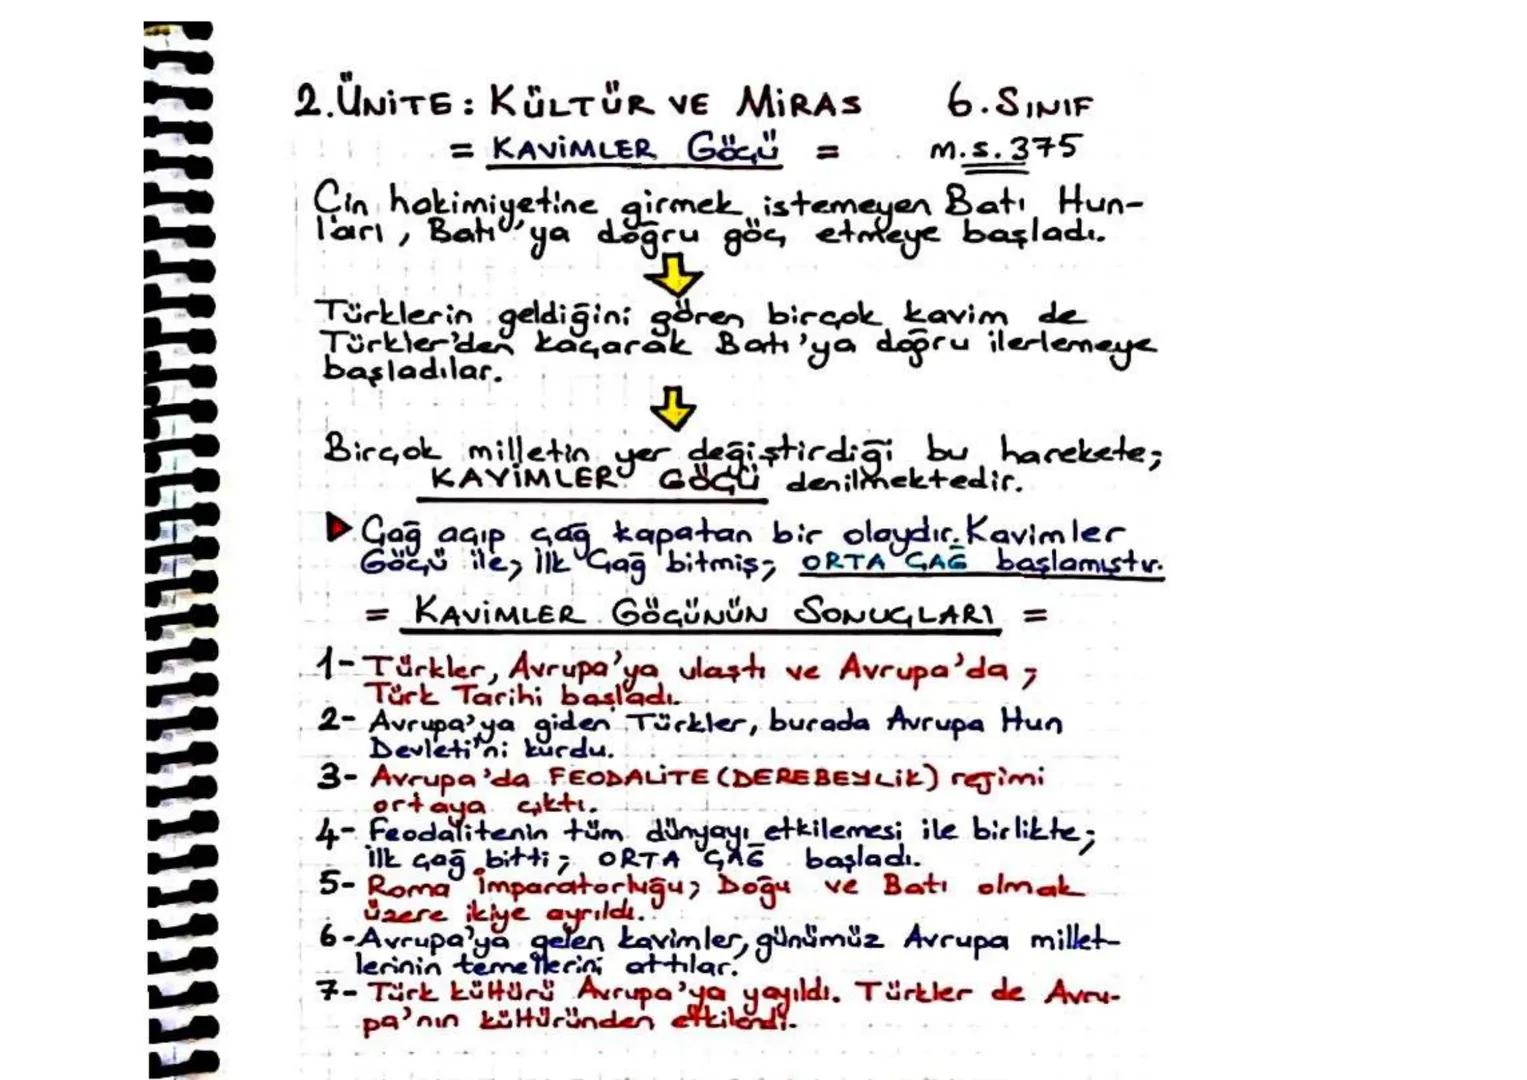 2.ÜNİTE: KÜLTÜR VE MİRAS 6.SINIF
= KAVİMLER GÖÇÜ = M.S.375
Çin hakimiyetine girmek istemeyen Batı Hun-
ları, Batı'ya doğru göç etmeye başladı.
Türklerin geldiğini gören birçok kavim de
Türkler'den kaçarak Batı'ya doğru ilerlemeye
başladılar.
Birçok milletin yer değiştirdiği bu harekete;
KAVİMLER GÖÇÜ denilmektedir.
Çağ açıp çağ kapatan bir olaydır. Kavimler
Göçü ile, İlk Çağ bitmiş; ORTA ÇAĞ başlamıştır.
= KAVİMLER GÖÇÜNÜN SONUÇLARI =
1- Türkler, Avrupa'ya ulaştı ve Avrupa'da;
Türk Tarihi başladı.
2- Avrupa'ya giden Türkler, burada Avrupa Hun
Devleti'ni kurdu.
3- Avrupa'da FEODALİTE (DEREBEYLİK) rejimi
ortaya çıktı.
4- Feodalitenin tüm dünyayı etkilemesi ile birlikte;
İlk Çağ bitti; ORTA ÇAĞ başladı.
5- Roma İmparatorluğu; Doğu ve Batı olmak
üzere ikiye ayrıldı.
6- Avrupa'ya gelen kavimler, günümüz Avrupa millet-
lerinin temellerini attılar.
7- Türk kültürü Avrupa'ya yayıldı. Türkler de Avru-
pa'nın kültüründen etkilendi.